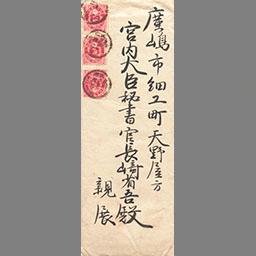 廣嶋市細工町天野屋方
宮内大臣秘書官長崎省吾殿
親展